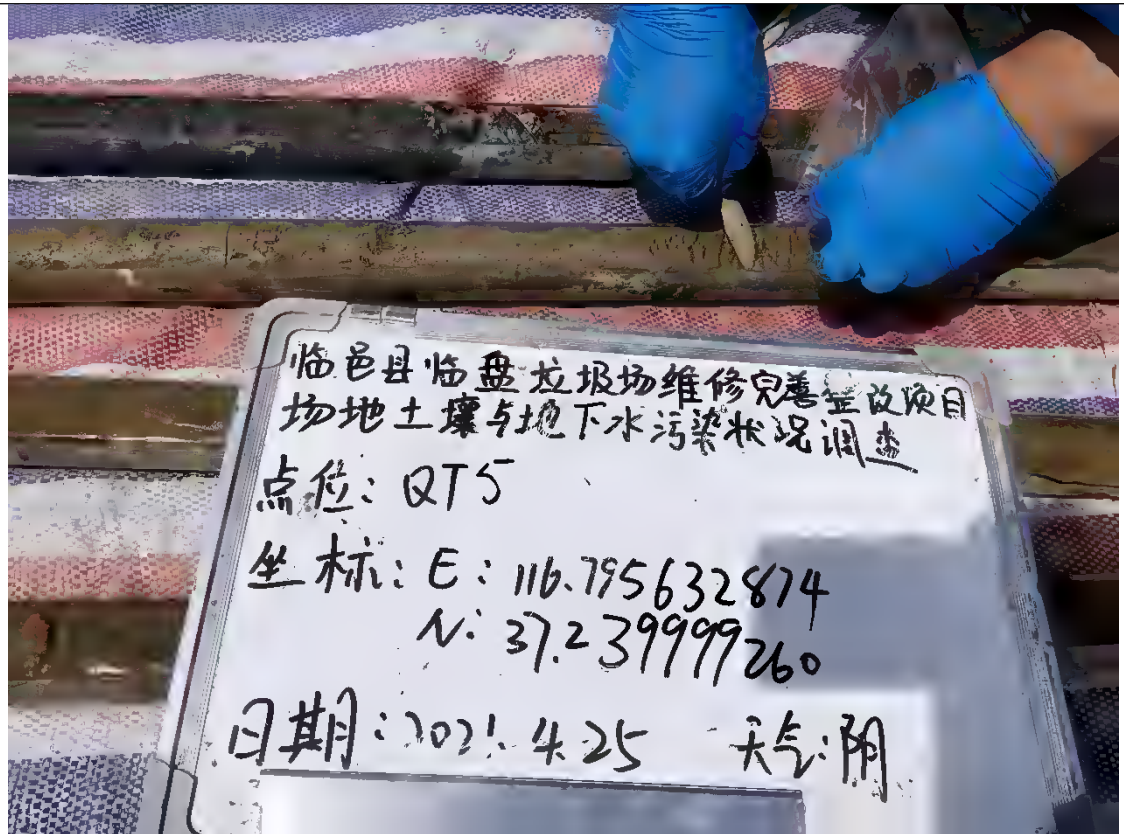 临邑县临盘垃圾场维修完善整改项目
场地土壤与地下水污染状况调查
点位：QT5
坐标：E：116.795632874
N：37.239999260
日期：2021.4.25 天气：阴